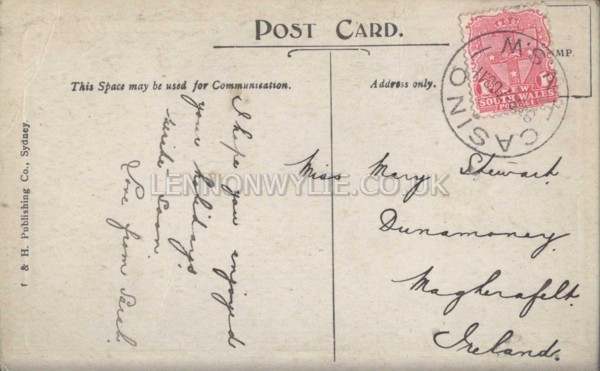 POST CARD.
This Space may be used for Communication.
Address only.
& H. Publishing Co., Sydney.
I hope you enjoyed
your holidays.
write soon
Love from Sarah.
Miss Mary Stewart
Dunamoney
Magherafelt
Ireland.
NEW
SOUTH WALES
CASINO
N.S.W
MP.
LENNONWYLIE.CO.UK